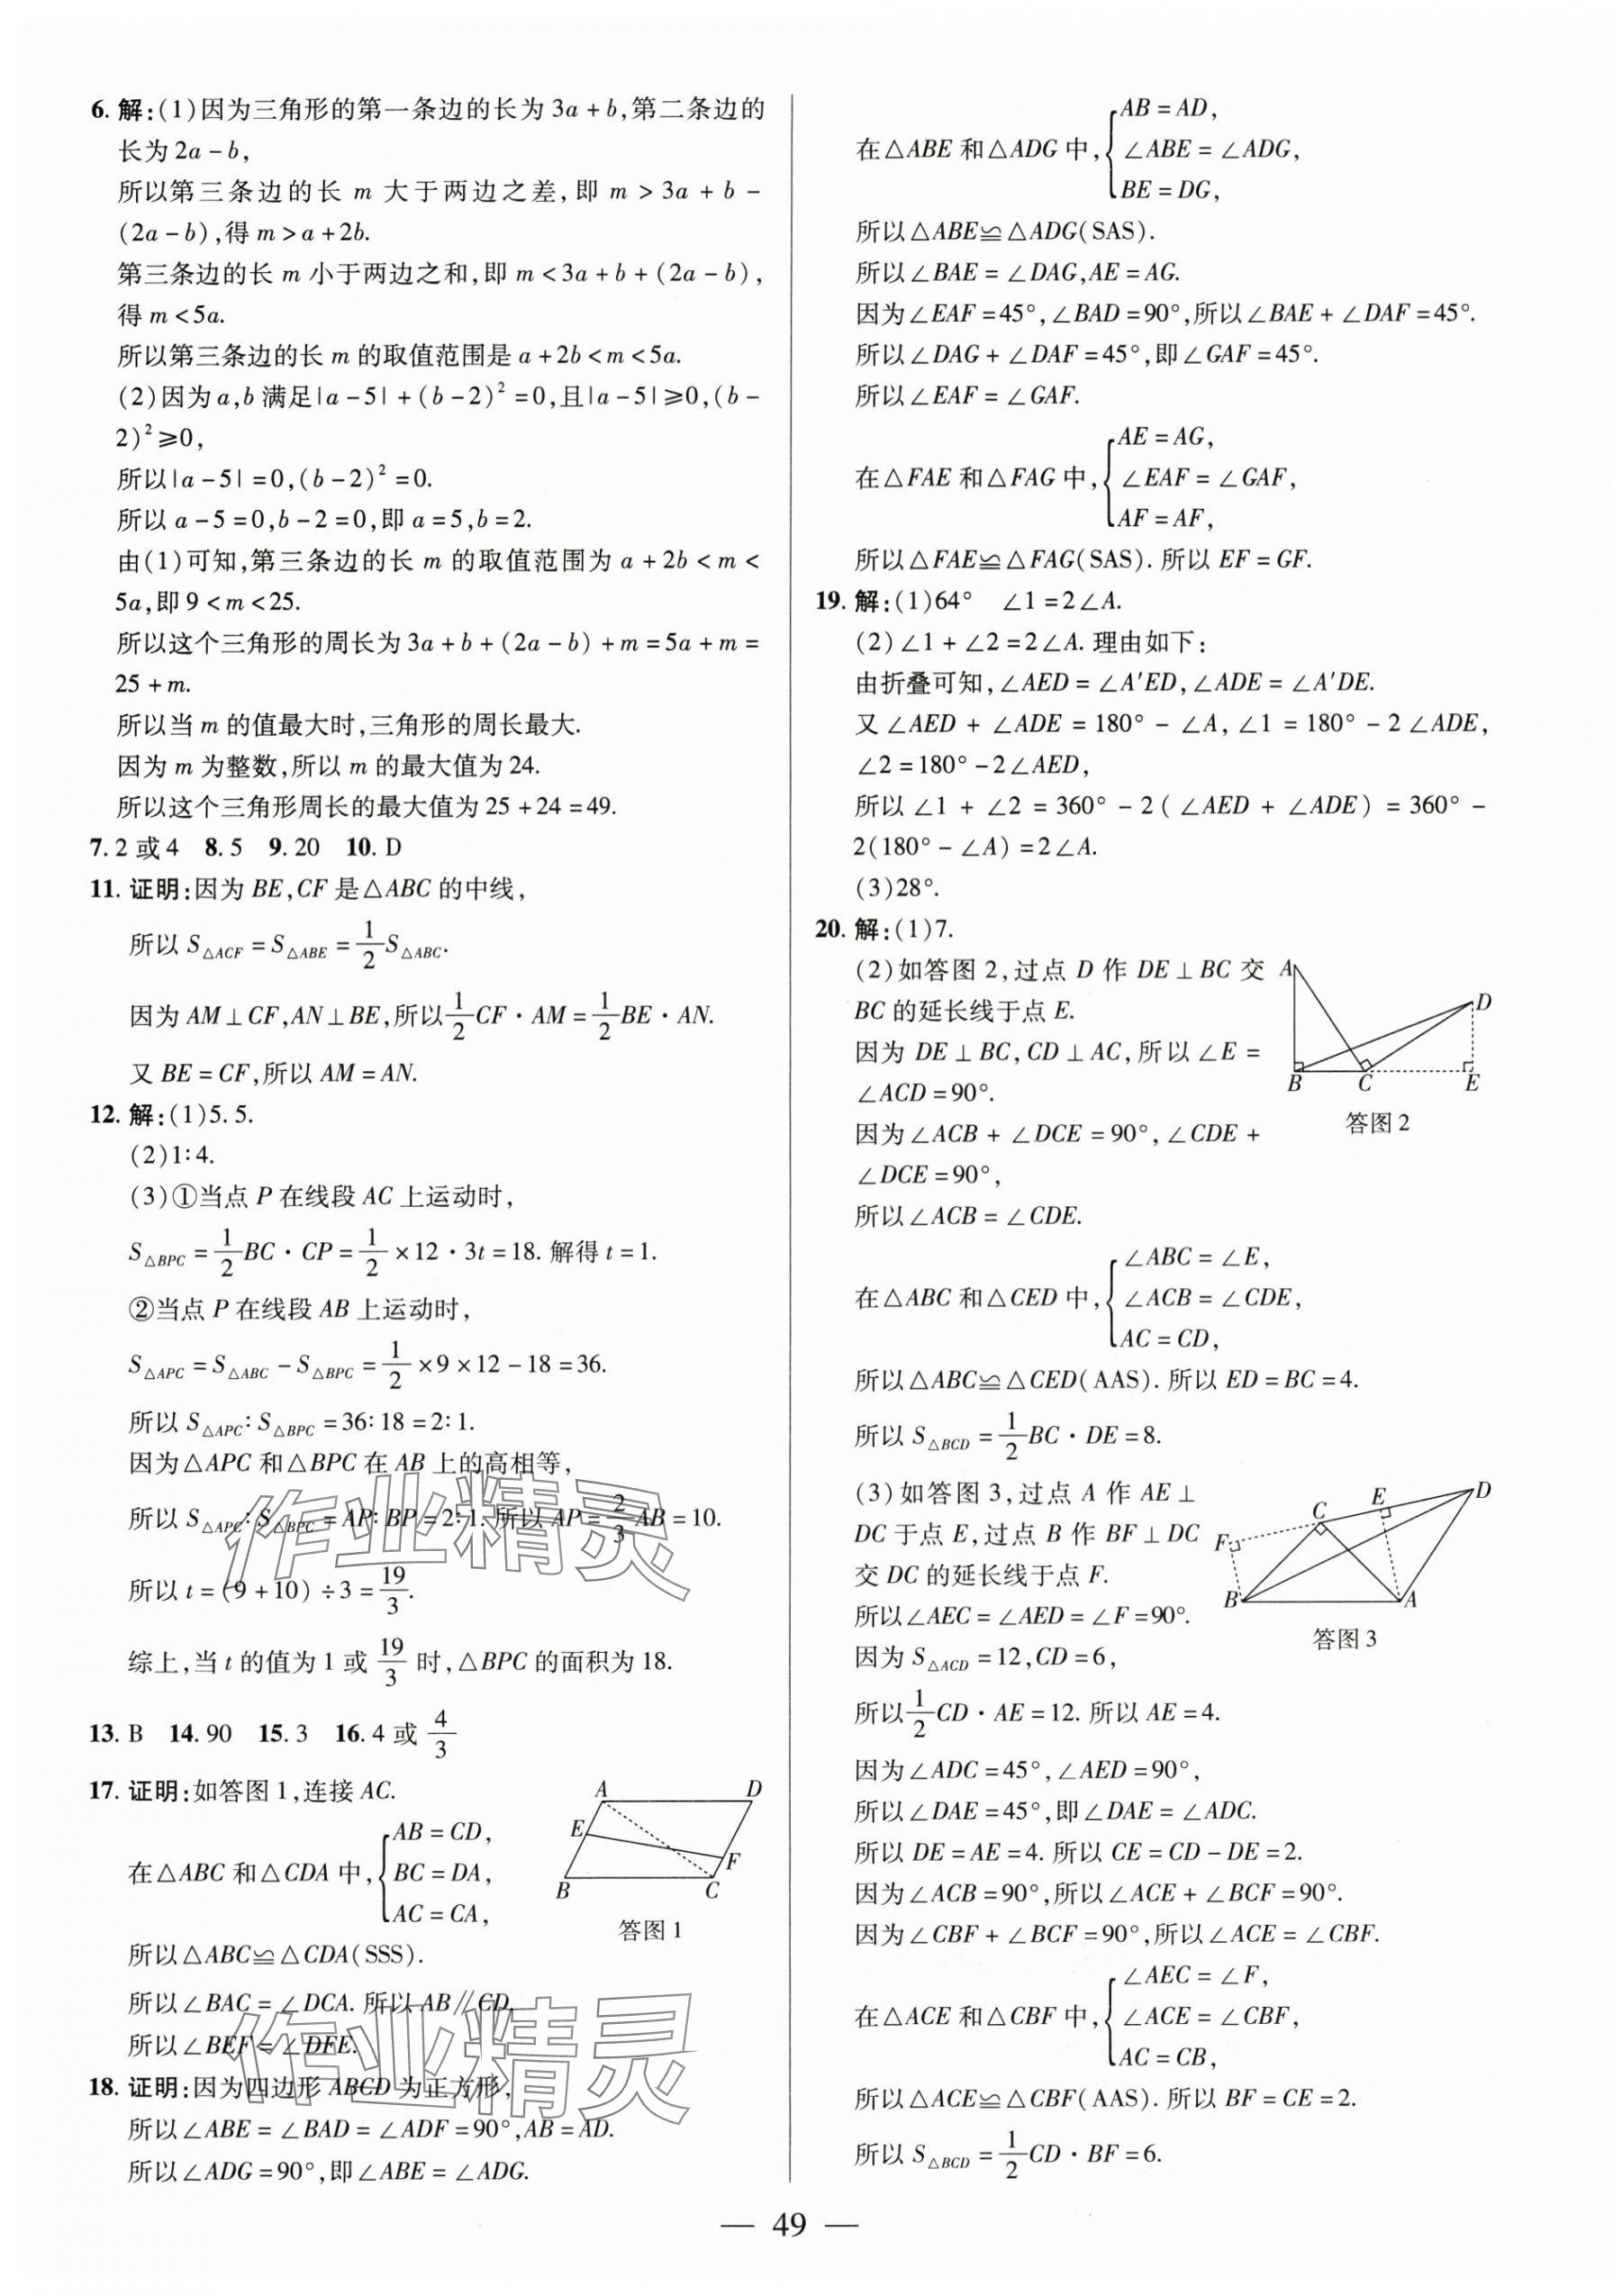 6. 解:(1)因为三角形的第一条边的长为 3a + b,第二条边的
长为 2a - b,
所以第三条边的长 m 大于两边之差,即 m > 3a + b -
(2a - b),得 m > a + 2b.
第三条边的长 m 小于两边之和,即 m < 3a + b + (2a - b),
得 m < 5a.
所以第三条边的长 m 的取值范围是 a + 2b < m < 5a.
(2)因为 a,b 满足|a - 5| + (b - 2)² = 0,且|a - 5| ≥ 0,(b -
2)² ≥ 0,
所以|a - 5| = 0,(b - 2)² = 0.
所以 a - 5 = 0,b - 2 = 0,即 a = 5,b = 2.
由(1)可知,第三条边的长 m 的取值范围为 a + 2b < m <
5a,即 9 < m < 25.
所以这个三角形的周长为 3a + b + (2a - b) + m = 5a + m =
25 + m.
所以当 m 的值最大时,三角形的周长最大.
因为 m 为整数,所以 m 的最大值为 24.
所以这个三角形周长的最大值为 25 + 24 = 49.
7. 2 或 4 8. 5 9. 20 10. D
11. 证明:因为 BE,CF 是△ABC 的中线,
所以 S△ACF = S△ABE = 1/2 S△ABC.
因为 AM⊥CF,AN⊥BE,所以 1/2 CF·AM = 1/2 BE·AN.
又 BE = CF,所以 AM = AN.
12. 解:(1)5.5.
(2)1:4.
(3)①当点 P 在线段 AC 上运动时,
S△BPC = 1/2 BC·CP = 1/2 × 12·3t = 18. 解得 t = 1.
②当点 P 在线段 AB 上运动时,
S△APC = S△ABC - S△BPC = 1/2 × 9 × 12 - 18 = 36.
所以 S△APC:S△BPC = 36:18 = 2:1.
因为△APC 和△BPC 在 AB 上的高相等,
所以 S△APC:S△BPC = AP:BP = 2:1. 所以 AP = 2/3 AB = 10.
所以 t = (9 + 10) ÷ 3 = 19/3.
综上,当 t 的值为 1 或 19/3 时,△BPC 的面积为 18.
13. B 14. 90 15. 3 16. 4 或 4/3
17. 证明:如答图 1,连接 AC.
在△ABC 和△CDA 中,{AB = CD,
BC = DA,
AC = CA,
A D E F B C
答图 1
所以△ABC≌△CDA(SSS).
所以∠BAC = ∠DCA. 所以 AB∥CD.
所以∠BEF = ∠DFE.
18. 证明:因为四边形 ABCD 为正方形,
所以∠ABE = ∠BAD = ∠ADF = 90°,AB = AD.
所以∠ADG = 90°,即∠ABE = ∠ADG.
作业精灵
作业精灵
在△ABE 和△ADG 中,{AB = AD,
∠ABE = ∠ADG,
BE = DG,
所以△ABE≌△ADG(SAS).
所以∠BAE = ∠DAG,AE = AG.
因为∠EAF = 45°,∠BAD = 90°,所以∠BAE + ∠DAF = 45°.
所以∠DAG + ∠DAF = 45°,即∠GAF = 45°.
所以∠EAF = ∠GAF.
在△FAE 和△FAG 中,{AE = AG,
∠EAF = ∠GAF,
AF = AF,
所以△FAE≌△FAG(SAS). 所以 EF = GF.
19. 解:(1)64° ∠1 = 2∠A.
(2)∠1 + ∠2 = 2∠A. 理由如下:
由折叠可知,∠AED = ∠A'ED,∠ADE = ∠A'DE.
又∠AED + ∠ADE = 180° - ∠A,∠1 = 180° - 2∠ADE,
∠2 = 180° - 2∠AED,
所以∠1 + ∠2 = 360° - 2(∠AED + ∠ADE) = 360° -
2(180° - ∠A) = 2∠A.
(3)28°.
20. 解:(1)7.
(2)如答图 2,过点 D 作 DE⊥BC 交
BC 的延长线于点 E.
因为 DE⊥BC,CD⊥AC,所以∠E =
∠ACD = 90°.
因为∠ACB + ∠DCE = 90°,∠CDE +
∠DCE = 90°,
所以∠ACB = ∠CDE.
A D B C E
答图 2
在△ABC 和△CED 中,{∠ABC = ∠E,
∠ACB = ∠CDE,
AC = CD,
所以△ABC≌△CED(AAS). 所以 ED = BC = 4.
所以 S△BCD = 1/2 BC·DE = 8.
(3)如答图 3,过点 A 作 AE⊥
DC 于点 E,过点 B 作 BF⊥DC
交 DC 的延长线于点 F.
所以∠AEC = ∠AED = ∠F = 90°.
因为 S△ACD = 12,CD = 6,
C E D F B A
答图 3
所以 1/2 CD·AE = 12. 所以 AE = 4.
因为∠ADC = 45°,∠AED = 90°,
所以∠DAE = 45°,即∠DAE = ∠ADC.
所以 DE = AE = 4. 所以 CE = CD - DE = 2.
因为∠ACB = 90°,所以∠ACE + ∠BCF = 90°.
因为∠CBF + ∠BCF = 90°,所以∠ACE = ∠CBF.
在△ACE 和△CBF 中,{∠AEC = ∠F,
∠ACE = ∠CBF,
AC = CB,
所以△ACE≌△CBF(AAS). 所以 BF = CE = 2.
所以 S△BCD = 1/2 CD·BF = 6.
— 49 —